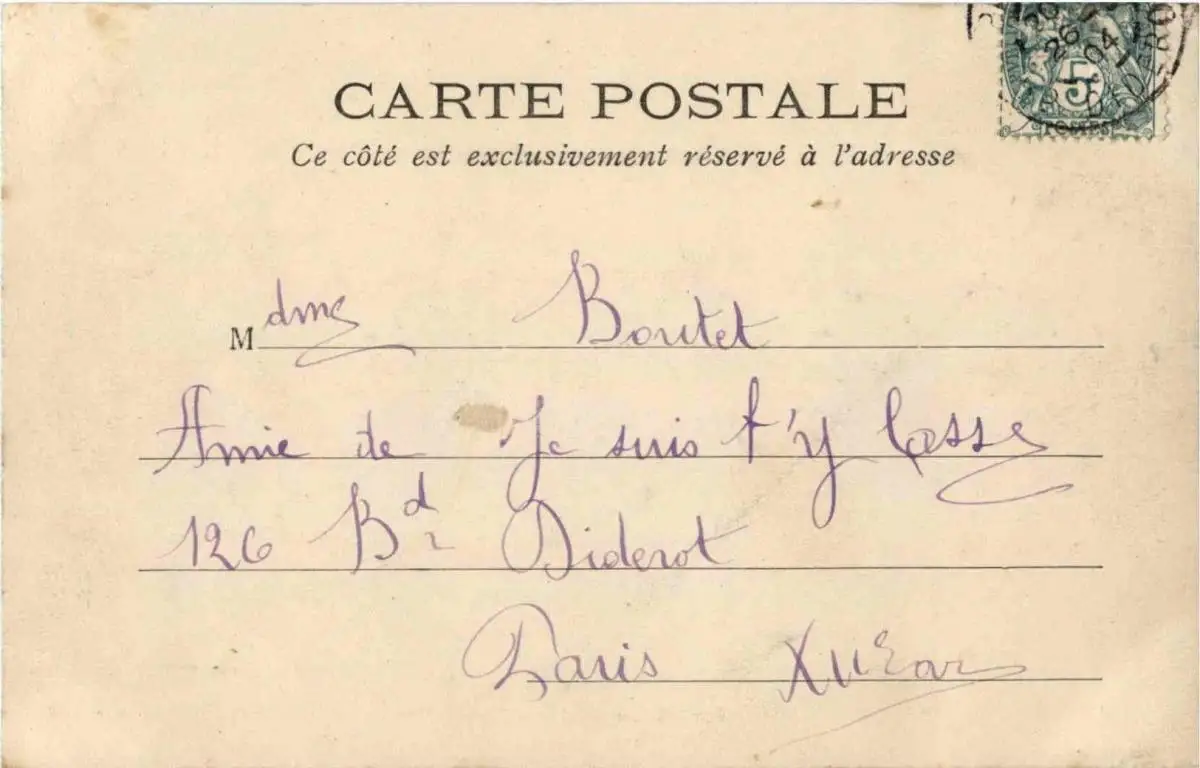 CARTE POSTALE
Ce côté est exclusivement réservé à l'adresse
20
26 04
5
POSTES
Mdme Boutet
Amie de Je suis t'y Casse
126 Bd Diderot
Paris XIIEar